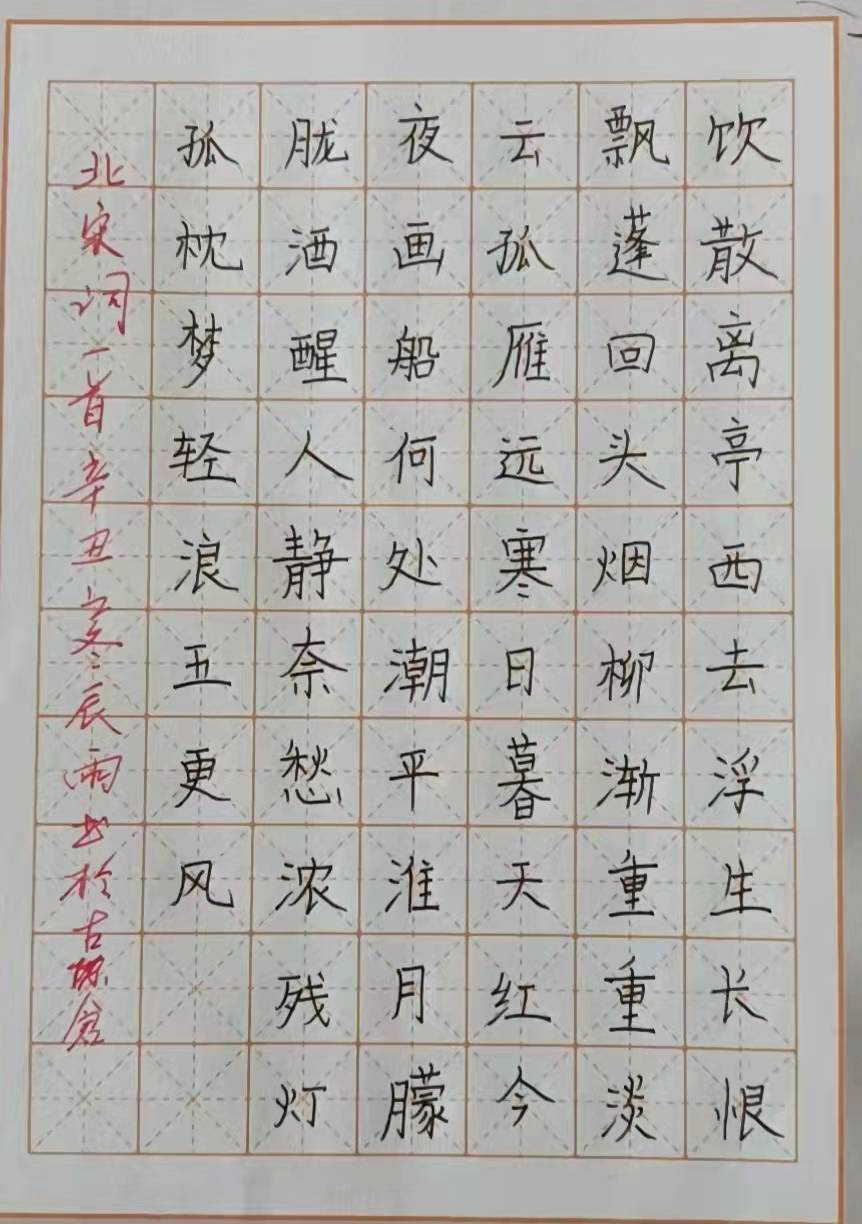 饮散离亭西去浮生长恨
飘蓬回头烟柳渐重重淡
云孤雁远寒日暮天红今
夜画船何处潮平淮月朦
胧酒醒人静奈愁浓残灯
孤枕梦轻浪五更风
北宋词一首辛丑冬辰雨书於古陈仓